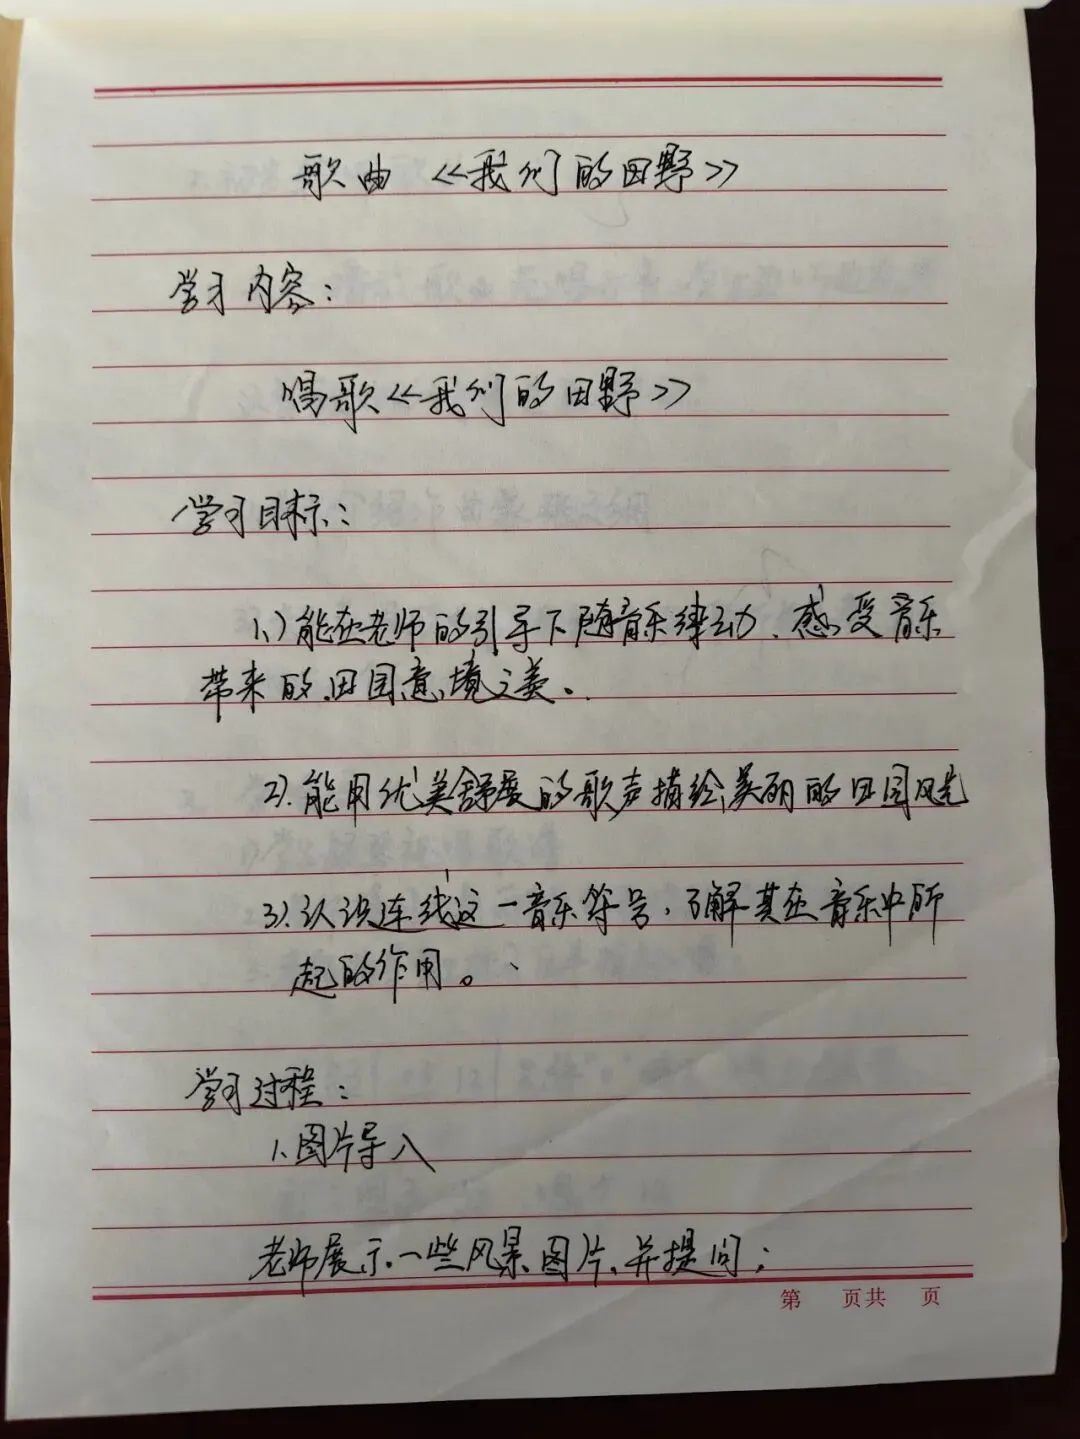 歌曲《我们的田野》
学习内容：
唱歌《我们的田野》
学习目标：
1、）能在老师的引导下随音乐律动、感受音乐
带来的田园意境之美。
2）.能用优美舒展的歌声描绘美丽的田园风光
3）.认识连线这一音乐符号，了解其在音乐中所
起的作用。
学习过程：
1、图片导入
老师展示一些风景图片、并提问：
第 页共 页